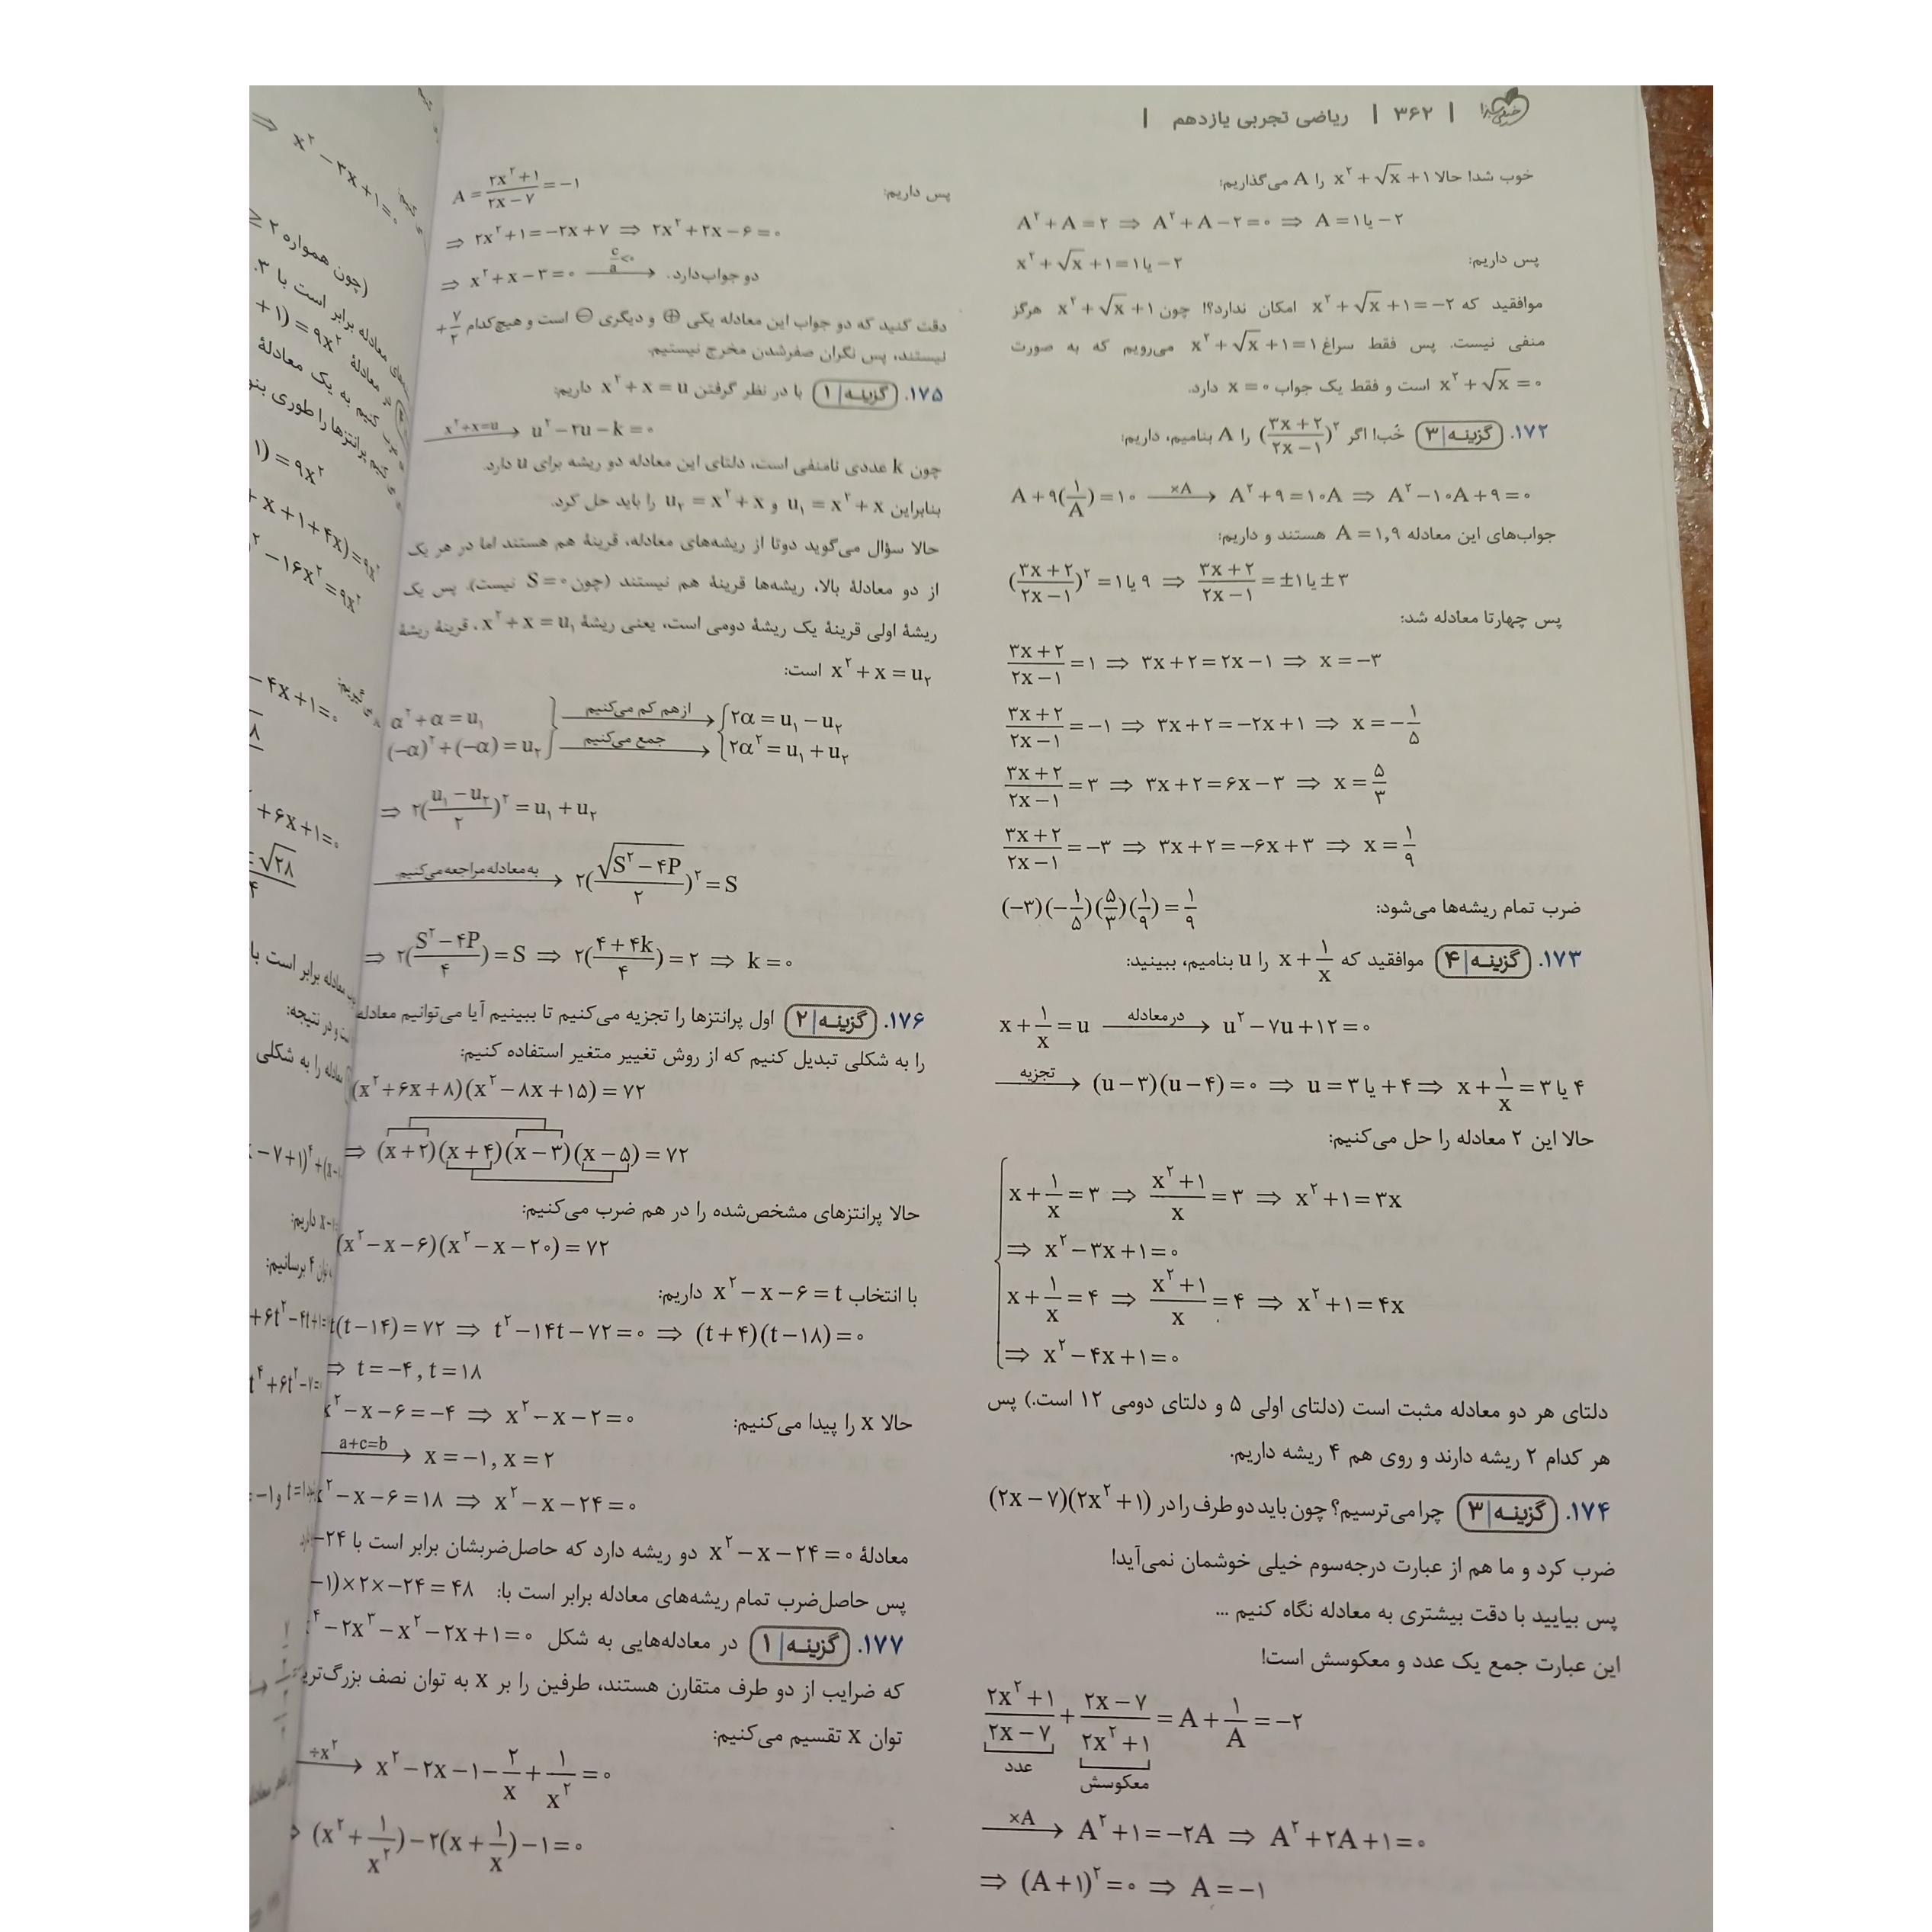 خیلی سبز | ۳۶۲ | ریاضی تجربی یازدهم |
خوب شد! حالا x²+√x+۱ را A می‌گذاریم:
A²+A=۲ ⇒ A²+A−۲=۰ ⇒ A=۱ یا −۲
پس داریم: x²+√x+۱=۱ یا −۲
موافقید که x²+√x+۱=−۲ امکان ندارد؟! چون x²+√x+۱ هرگز
منفی نیست. پس فقط سراغ x²+√x+۱=۱ می‌رویم که به صورت
x²+√x=۰ است و فقط یک جواب x=۰ دارد.
۱۷۲. گزینه|۳ خُب! اگر ((۳x+۲)/(۲x−۱))² را A بنامیم، داریم:
A+۹(۱/A)=۱۰ —×A→ A²+۹=۱۰A ⇒ A²−۱۰A+۹=۰
جواب‌های این معادله A=۱,۹ هستند و داریم:
((۳x+۲)/(۲x−۱))²=۱ یا ۹ ⇒ (۳x+۲)/(۲x−۱)=±۱ یا ±۳
پس چهارتا معادله شد:
(۳x+۲)/(۲x−۱)=۱ ⇒ ۳x+۲=۲x−۱ ⇒ x=−۳
(۳x+۲)/(۲x−۱)=−۱ ⇒ ۳x+۲=−۲x+۱ ⇒ x=−۱/۵
(۳x+۲)/(۲x−۱)=۳ ⇒ ۳x+۲=۶x−۳ ⇒ x=۵/۳
(۳x+۲)/(۲x−۱)=−۳ ⇒ ۳x+۲=−۶x+۳ ⇒ x=۱/۹
ضرب تمام ریشه‌ها می‌شود: (−۳)(−۱/۵)(۵/۳)(۱/۹)=۱/۹
۱۷۳. گزینه|۴ موافقید که x+۱/x را u بنامیم، ببینید:
x+۱/x=u —در معادله→ u²−۷u+۱۲=۰
—تجزیه→ (u−۳)(u−۴)=۰ ⇒ u=۳ یا +۴ ⇒ x+۱/x=۳ یا ۴
حالا این ۲ معادله را حل می‌کنیم:
x+۱/x=۳ ⇒ (x²+۱)/x=۳ ⇒ x²+۱=۳x
⇒ x²−۳x+۱=۰
x+۱/x=۴ ⇒ (x²+۱)/x=۴ ⇒ x²+۱=۴x
⇒ x²−۴x+۱=۰
دلتای هر دو معادله مثبت است (دلتای اولی ۵ و دلتای دومی ۱۲ است.) پس
هر کدام ۲ ریشه دارند و روی هم ۴ ریشه داریم.
۱۷۴. گزینه|۳ چرا می‌ترسیم؟ چون باید دو طرف را در (۲x−۷)(۲x²+۱)
ضرب کرد و ما هم از عبارت درجه‌سوم خیلی خوشمان نمی‌آید!
پس بیایید با دقت بیشتری به معادله نگاه کنیم ...
این عبارت جمع یک عدد و معکوسش است!
(۲x²+۱)/(۲x−۷)+(۲x−۷)/(۲x²+۱)=A+۱/A=−۲
عدد معکوسش
—×A→ A²+۱=−۲A ⇒ A²+۲A+۱=۰
⇒ (A+۱)²=۰ ⇒ A=−۱
پس داریم: A=(۲x²+۱)/(۲x−۷)=−۱
⇒ ۲x²+۱=−۲x+۷ ⇒ ۲x²+۲x−۶=۰
⇒ x²+x−۳=۰ —c/a<۰→ دو جواب دارد.
دقت کنید که دو جواب این معادله یکی ⊕ و دیگری ⊖ است و هیچ‌کدام +۷/۲
نیستند، پس نگران صفرشدن مخرج نیستیم.
۱۷۵. گزینه|۱ با در نظر گرفتن x²+x=u داریم:
—x²+x=u→ u²−۲u−k=۰
چون k عددی نامنفی است، دلتای این معادله دو ریشه برای u دارد.
بنابراین u₁=x²+x و u₂=x²+x را باید حل کرد.
حالا سؤال می‌گوید دوتا از ریشه‌های معادله، قرینهٔ هم هستند اما در هر یک
از دو معادلهٔ بالا، ریشه‌ها قرینهٔ هم نیستند (چون S=۰ نیست). پس یک
ریشهٔ اولی قرینهٔ یک ریشهٔ دومی است، یعنی ریشهٔ x²+x=u₁، قرینهٔ ریشهٔ
x²+x=u₂ است:
α²+α=u₁ —از هم کم می‌کنیم→ ۲α=u₁−u₂
(−α)²+(−α)=u₂ —جمع می‌کنیم→ ۲α²=u₁+u₂
⇒ ۲((u₁−u₂)/۲)²=u₁+u₂
—به معادله مراجعه می‌کنیم.→ ۲(√(S²−۴P)/۲)²=S
⇒ ۲((S²−۴P)/۴)=S ⇒ ۲((۴+۴k)/۴)=۲ ⇒ k=۰
۱۷۶. گزینه|۲ اول پرانتزها را تجزیه می‌کنیم تا ببینیم آیا می‌توانیم معادله
را به شکلی تبدیل کنیم که از روش تغییر متغیر استفاده کنیم:
(x²+۶x+۸)(x²−۸x+۱۵)=۷۲
⇒ (x+۲)(x+۴)(x−۳)(x−۵)=۷۲
حالا پرانتزهای مشخص‌شده را در هم ضرب می‌کنیم:
(x²−x−۶)(x²−x−۲۰)=۷۲
با انتخاب x²−x−۶=t داریم:
t(t−۱۴)=۷۲ ⇒ t²−۱۴t−۷۲=۰ ⇒ (t+۴)(t−۱۸)=۰
⇒ t=−۴, t=۱۸
حالا x را پیدا می‌کنیم: x²−x−۶=−۴ ⇒ x²−x−۲=۰
—a+c=b→ x=−۱, x=۲
x²−x−۶=۱۸ ⇒ x²−x−۲۴=۰
معادلهٔ x²−x−۲۴=۰ دو ریشه دارد که حاصل‌ضربشان برابر است با −۲۴
پس حاصل‌ضرب تمام ریشه‌های معادله برابر است با: −۱)×۲×−۲۴=۴۸
۱۷۷. گزینه|۱ در معادله‌هایی به شکل ⁴−۲x³−x²−۲x+۱=۰
که ضرایب از دو طرف متقارن هستند، طرفین را بر x به توان نصف بزرگ‌تری
توان x تقسیم می‌کنیم:
—÷x²→ x²−۲x−۱−۲/x+۱/x²=۰
⇒ (x²+۱/x²)−۲(x+۱/x)−۱=۰
⇒ x²−۳x+۱=۰
(چون همواره ۲ ≤
معادله برابر است با ۳.
معادلهٔ ۹x²=(۱+
کنیم به یک معادلهٔ
پرانتزها را طوری
۱)=۹x²
+x+۱+۴x)=۹x²
²−۱۶x²=۹x²
−۴x+۱=۰
+۶x+۱=۰
√۲۸
معادله برابر است با
و در نتیجه:
معادله را به شکلی
−۷+۱)⁴+(x−
داریم:
توان ۴ برسانیم:
+۶t²−۴t+۱
t⁴+۶t²−۷=